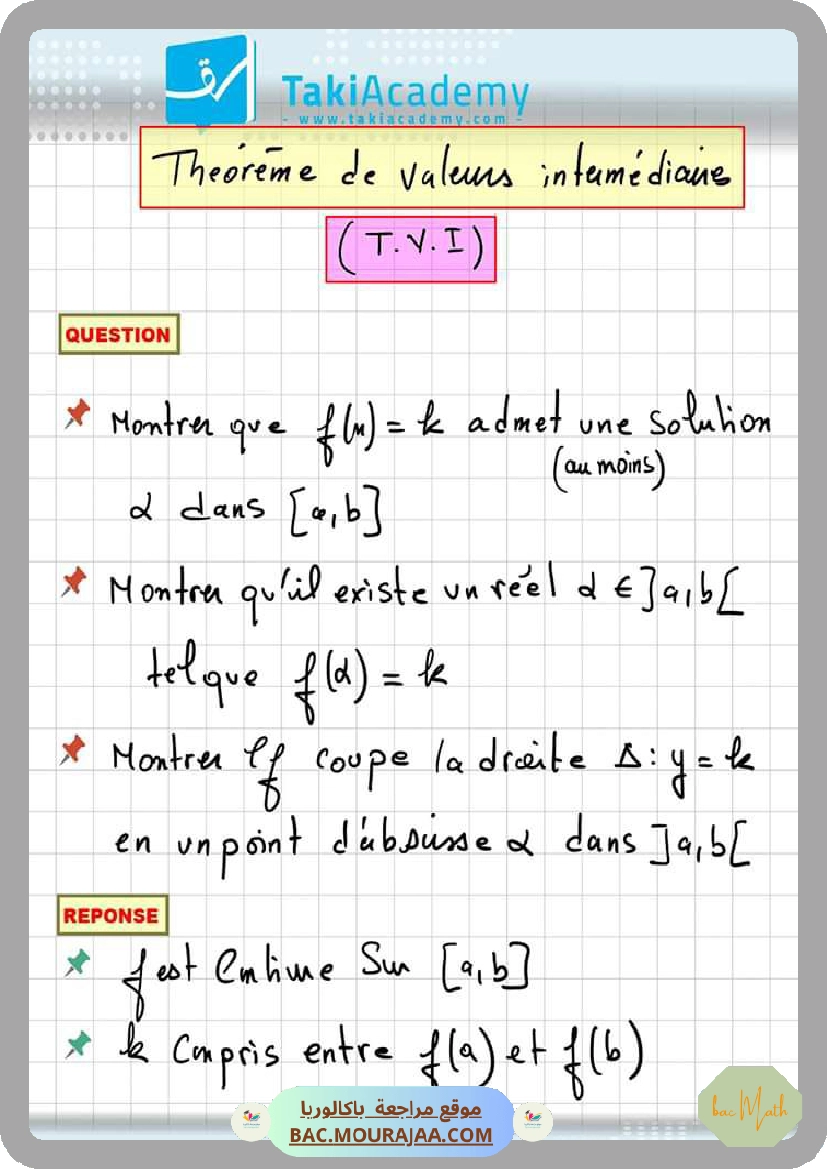 TakiAcademy
- www.takiacademy.com -
Théorème de valeurs intermédiaire
(T.V.I)
QUESTION
Montrer que f(x) = k admet une solution
(au moins)
α dans [a,b]
Montrer qu'il existe un réel α ∈ ]a,b[
tel que f(α) = k
Montrer ζf coupe la droite Δ: y = k
en un point d'abscisse α dans ]a,b[
REPONSE
f est Continue Sur [a,b]
k Compris entre f(a) et f(b)
موقع مراجعة باكالوريا
BAC.MOURAJAA.COM
bac Math